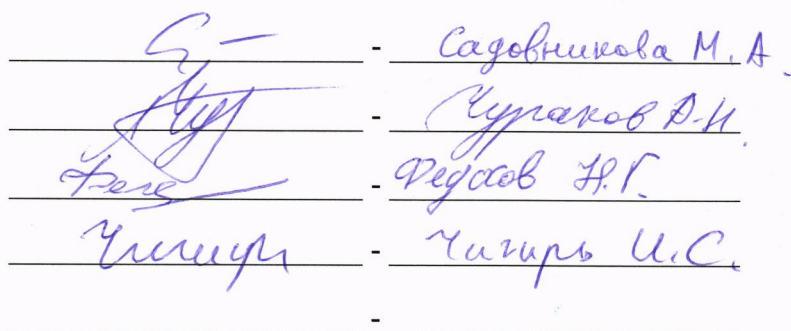 - Садовникова М.А.
- Чураков Д.Н.
- Федосов Н.Г.
Чигирь - Чигирь И.С.
-